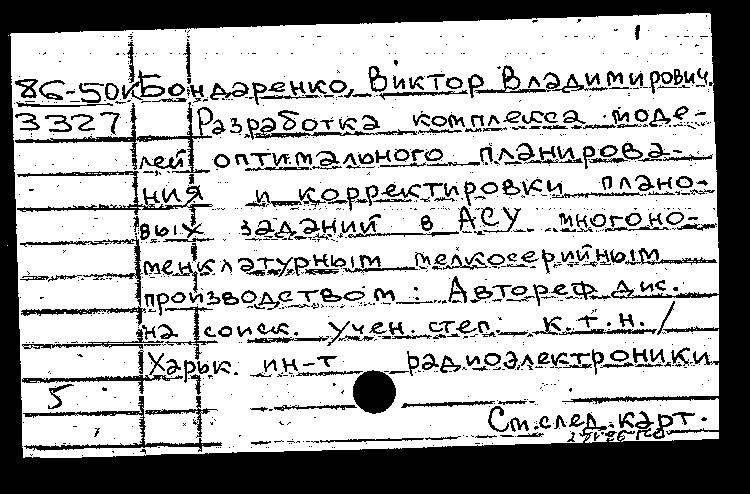 86-50к Бондаренко, Виктор Владимирович.
3327 Разработка комплекса моде-
лей оптимального планирова-
ния и корректировки плано-
вых заданий в АСУ многоно-
менклатурным мелкосерийным
производством: Автореф. дис.
на соиск. учен. степ. к.т.н. /
Харьк. ин-т радиоэлектроники
5
См. след. карт.